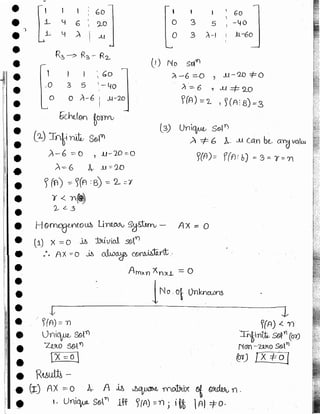 [ 1 1 1 : 60
1 4 6 : 20
1 4 λ | μ ]
[ 1 1 1 : 60
0 3 5 : -40
0 3 λ-1 : μ-60 ]
R₃ → R₃ - R₂
[ 1 1 1 ; 60
0 3 5 : -40
0 0 λ-6 | μ-20 ]
Echelon form
(1) No solⁿ
λ-6 = 0 , μ-20 ≠ 0
λ = 6 , μ ≠ 20
ρ(A) = 2 , ρ(A:B) = 3
(2) Infinite Solⁿ
λ-6 = 0 , μ-20 = 0
λ = 6 & μ = 20
ρ(A) = ρ(A:B) = 2 = r
r < n
2 < 3
(3) Unique Solⁿ
λ ≠ 6 & μ can be any value
ρ(A) = ρ(A:B) = 3 = r = n
Homogeneous Linear System - AX = 0
(1) X = 0 is trivial solⁿ
∴ AX = 0 is always consistent.
Aₘₓₙ Xₙₓ₁ = 0
No. of Unknowns
ρ(A) = n
Unique Solⁿ
Zero solⁿ
X = 0
ρ(A) < n
Infinite Solⁿ (or)
Non-zero Solⁿ
(or) X ≠ 0
Results -
(I) AX = 0 & A is square matrix of order n.
1. Unique Solⁿ iff ρ(A) = n ; iff |A| ≠ 0.